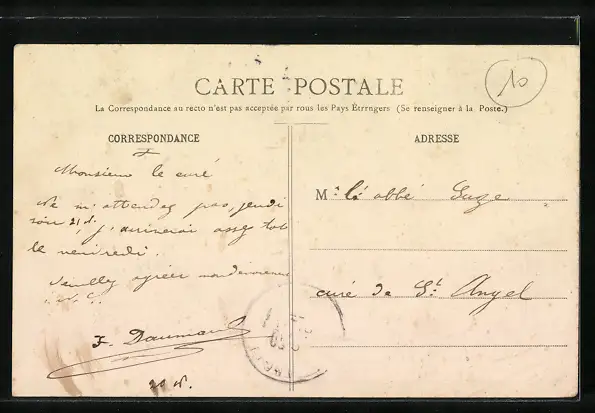 10
CARTE POSTALE
La Correspondance au recto n'est pas acceptée par rous les Pays Étrrngers (Se renseigner à la Poste.)
CORRESPONDANCE
ADRESSE
Monsieur le curé
Ne m'attendez pas, jeudi
soir 21 d. j'arriverai assez tot
le vendredi.
Veuillez agréer
F. Daumard
20 d.
M. l'abbé
curé de St Angel